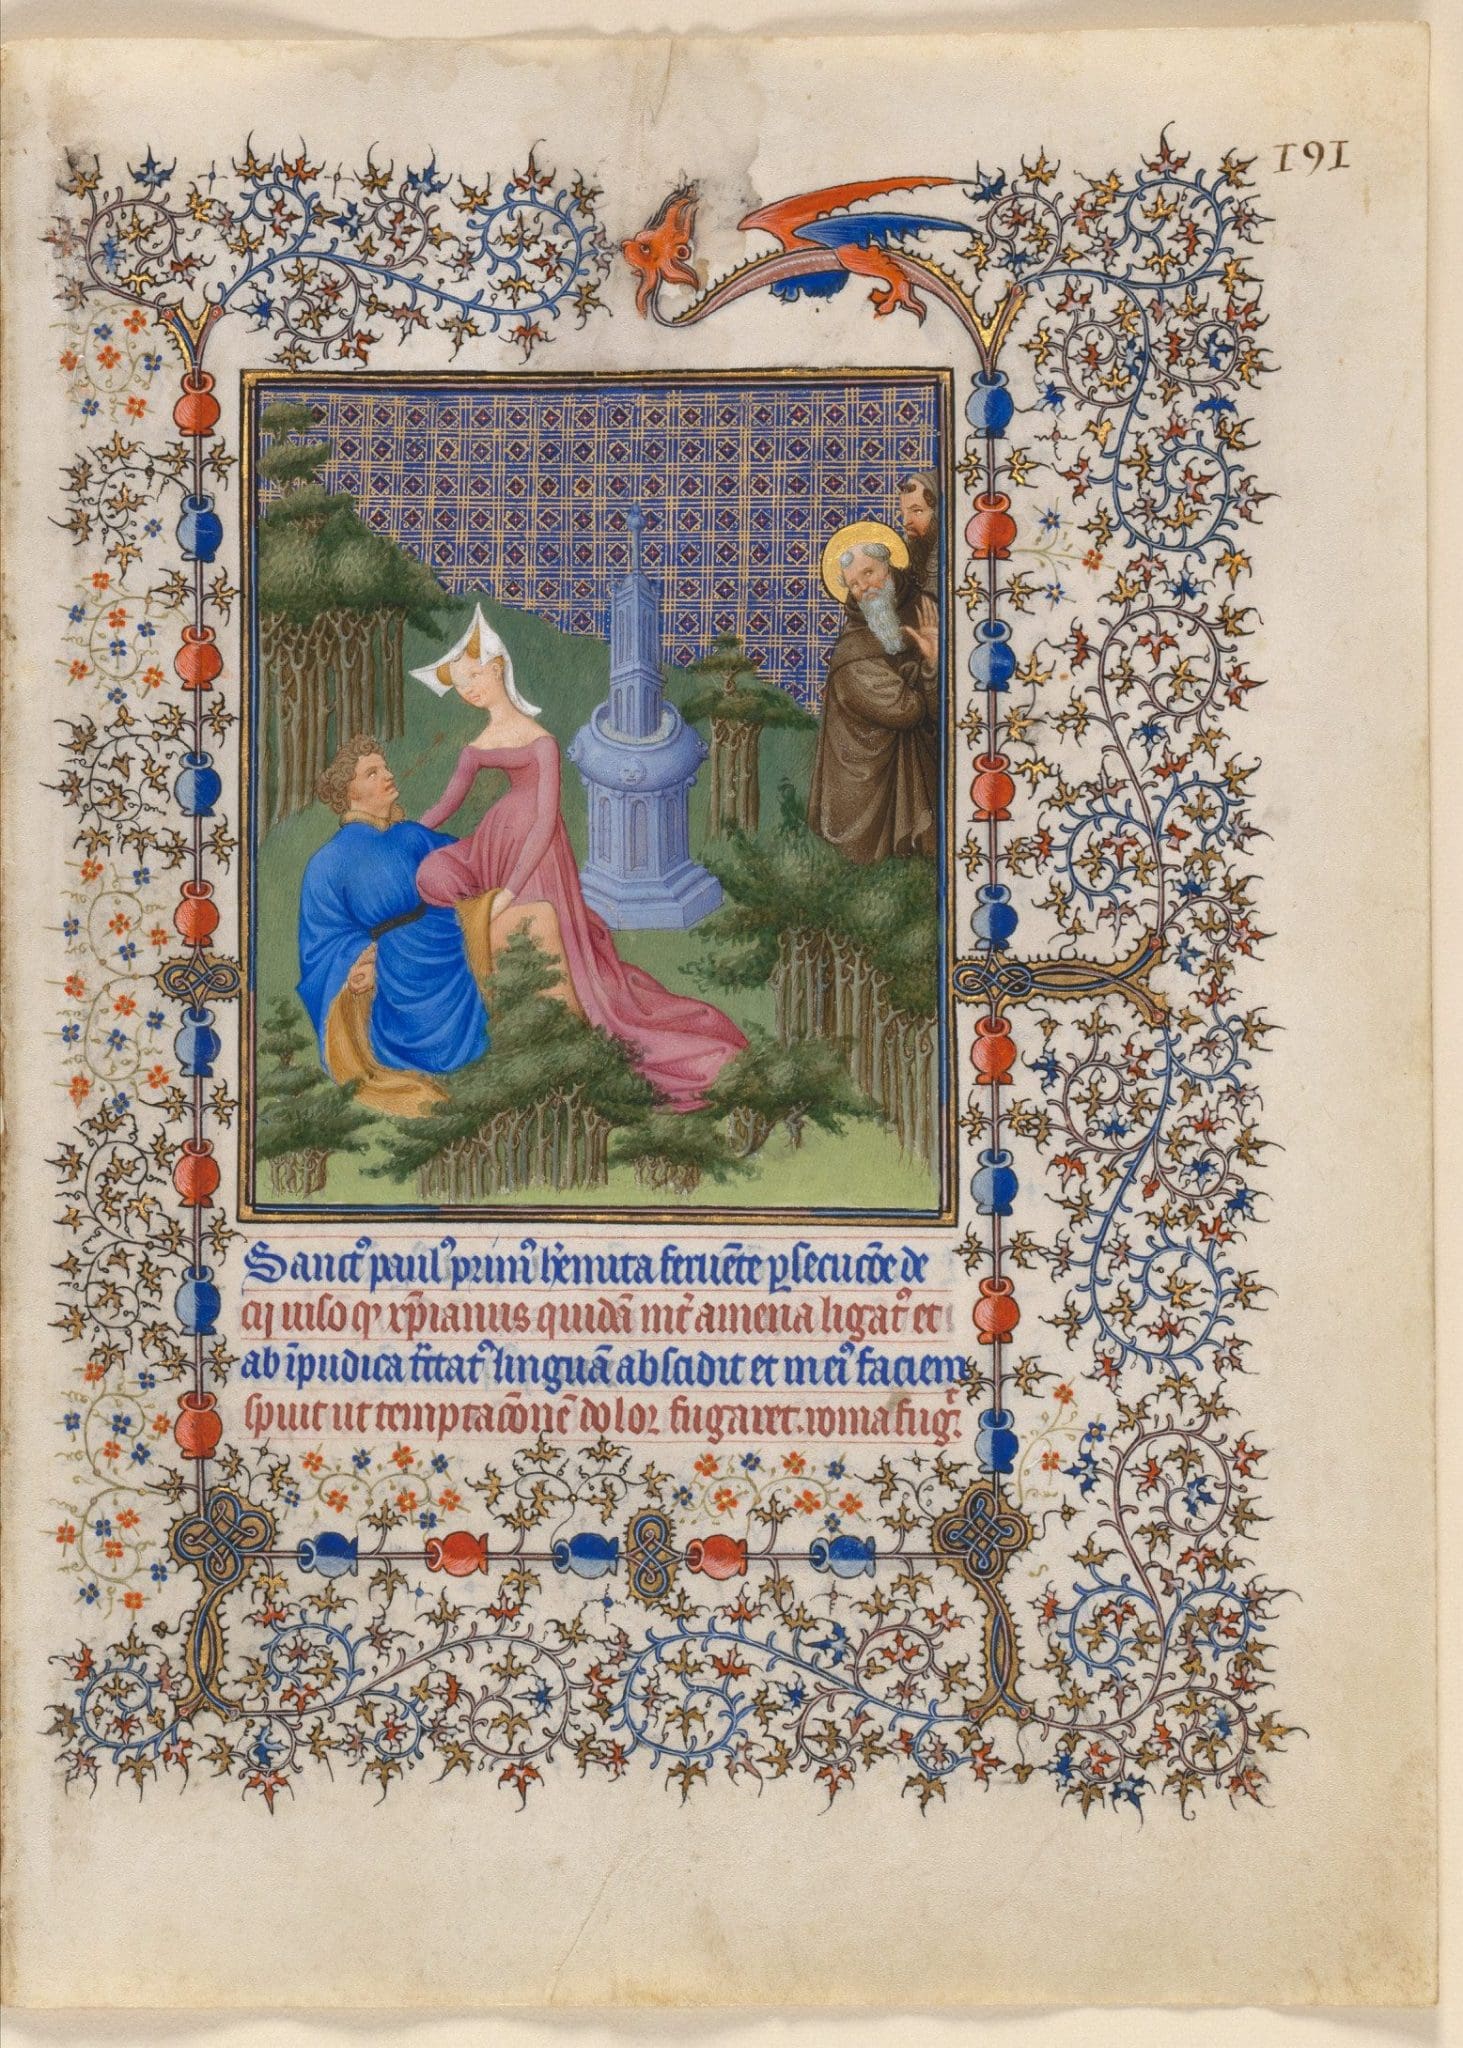 191
Sanctꝰ paulꝰ primꝰ h̓emita feruēte ꝑsecucōe de
cij uiso qꝫ xp̄ianus quidā int̓ amena ligatꝰ et
ab īpudica t̄ctatꝰ linguā abscidit et in eiꝰ faciem
spuit ut temptacōnē dolor fugaret. roma fugᵗ.